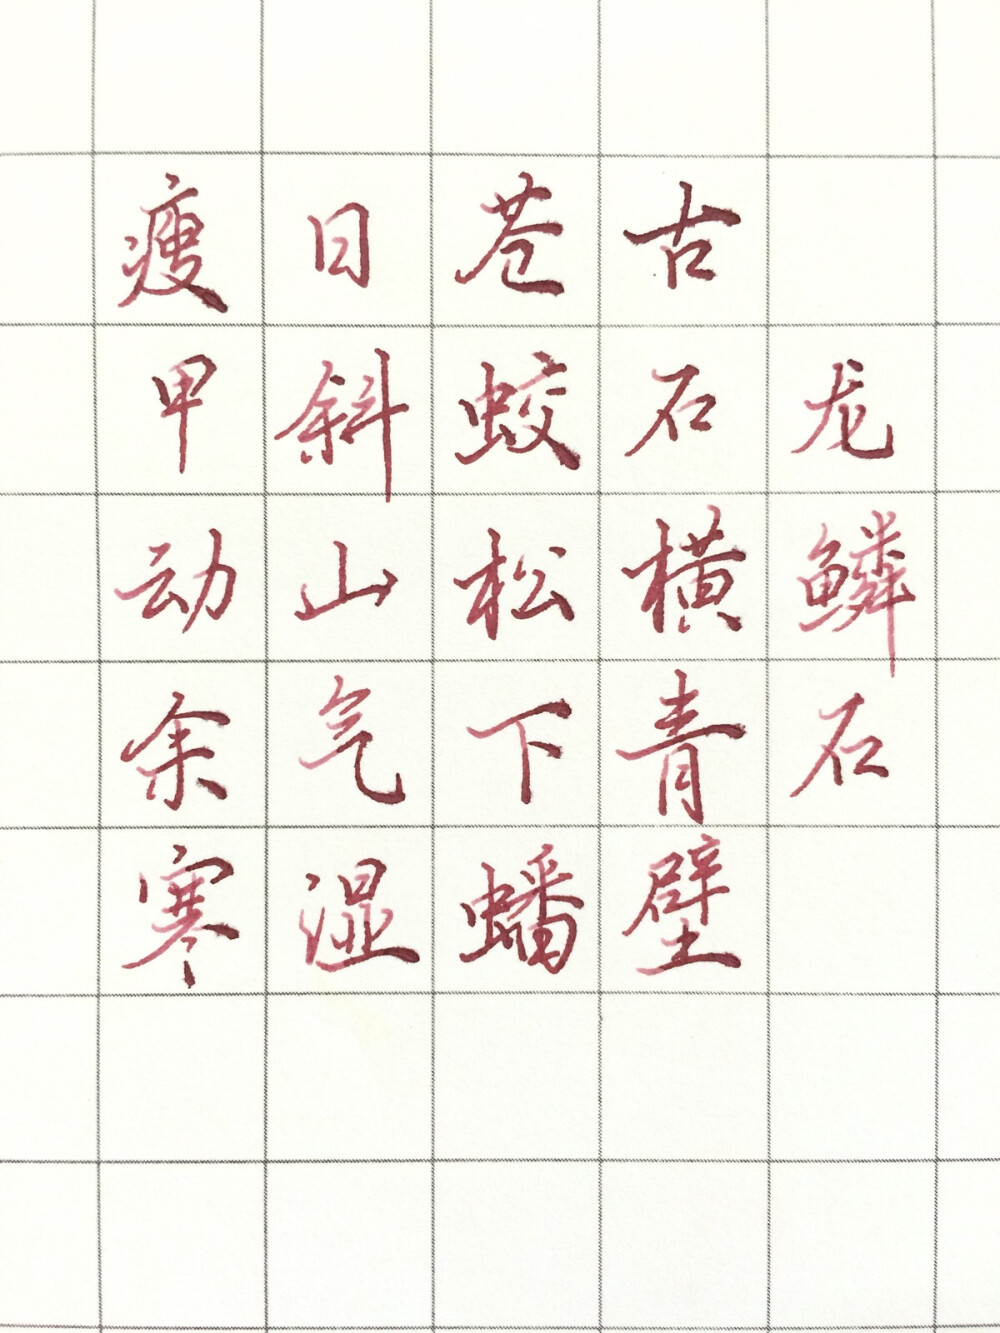 龙鳞石
古石横青壁
苍蛟松下蟠
日斜山气湿
瘦甲动余寒